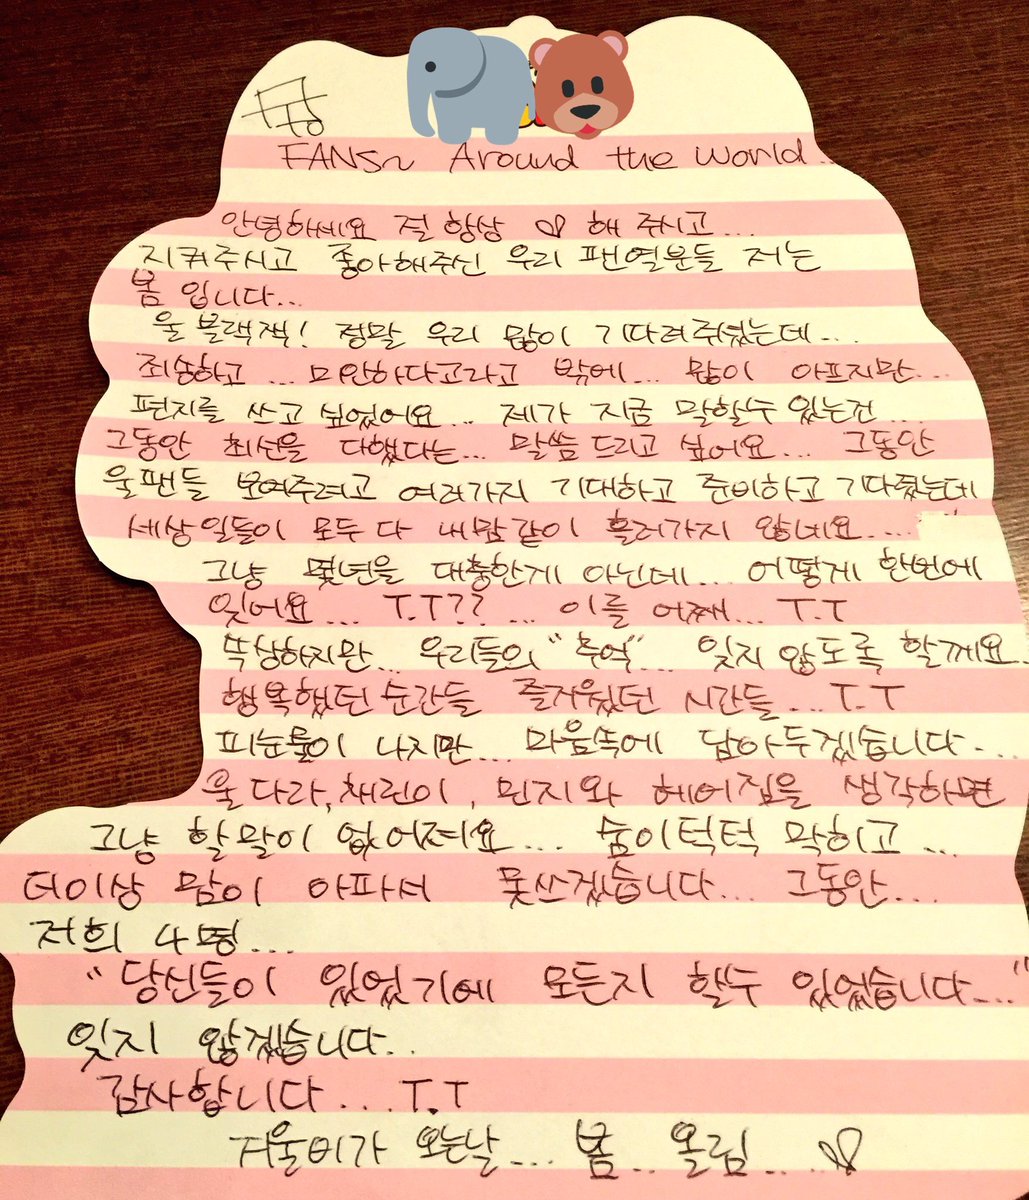 FANS~ Around the world..
안녕하세요 절 항상 ♡ 해 주시고...
지켜주시고 좋아해주신 우리 팬열분들 저는
봄 입니다...
울 블랙잭! 정말 우리 많이 기다려주셨는데...
죄송하고 ... 미안하다고라고 밖에... 맘이 아프지만...
편지를 쓰고 싶었어요... 제가 지금 말할수 있는건...
그동안 최선을 다했다는... 말씀 드리고 싶어요... 그동안
울팬들 보여주려고 여러가지 기대하고 준비하고 기다렸는데
세상일들이 모두 다 내맘같이 흘러가지 않네요....
그냥 몇년을 대충한게 아닌데... 어떻게 한번에
잊어요... T.T?? ... 이를 어째... T.T
뚝상하지만... 우리들의 "추억"... 잊지 않도록 할께요..
행복했던 순간들 즐거웠던 시간들... T.T
피눈물이 나지만... 마음쏙에 담아두겠습니다...
울 다라, 채린이, 민지와 헤어짐을 생각하면
그냥 할말이 없어져요... 숨이턱턱 막히고 ...
더이상 맘이 아파서 못쓰겠습니다... 그동안....
저희 4명...
"당신들이 있었기에 모든지 할수 있었습니다..."
잊지 않겠습니다..
감사합니다... T.T
겨울비가 오는날... 봄.. 올림... ♡